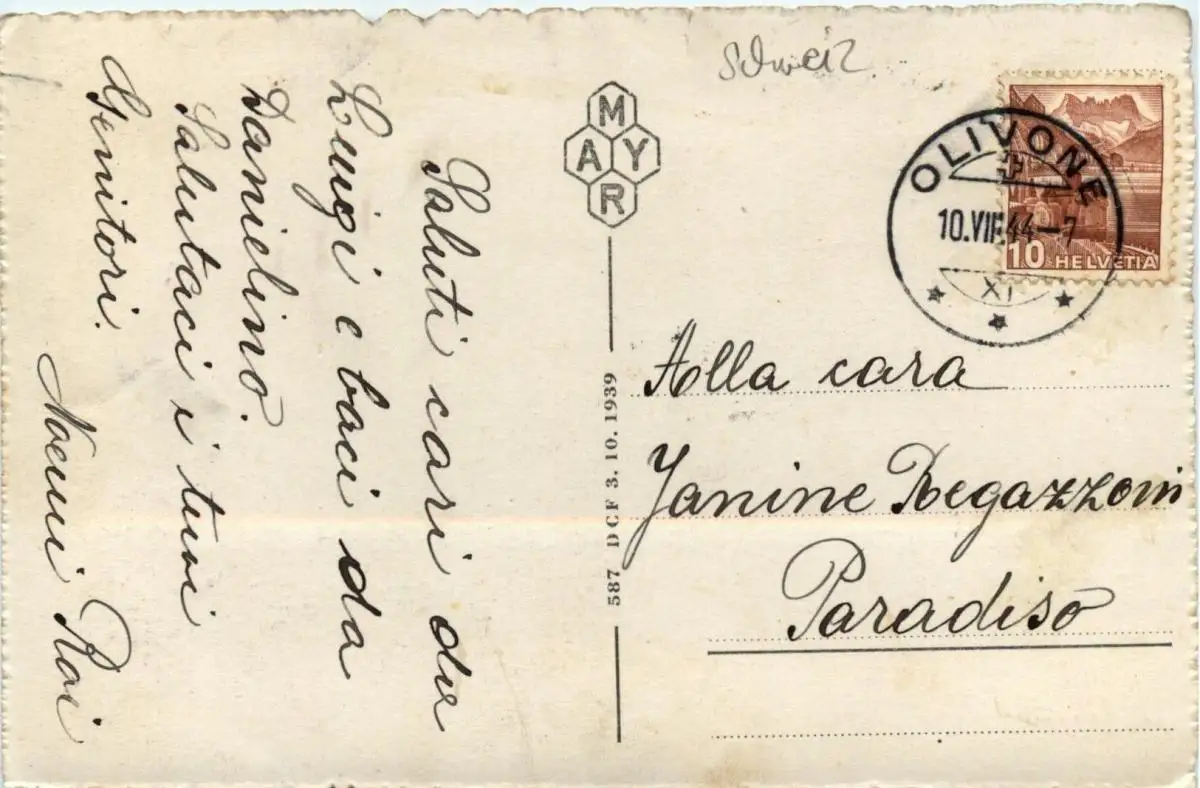 Saluti cari da
Luigi e baci da
Danielino.
Salutaci i tuoi
Genitori.
Noemi Roi
MAYR
587 DCF 3. 10. 1939
Schweiz
OLIVONE
10.VIII.44-7
XI
10 HELVETIA
Alla cara
Janine Regazzoni
Paradiso